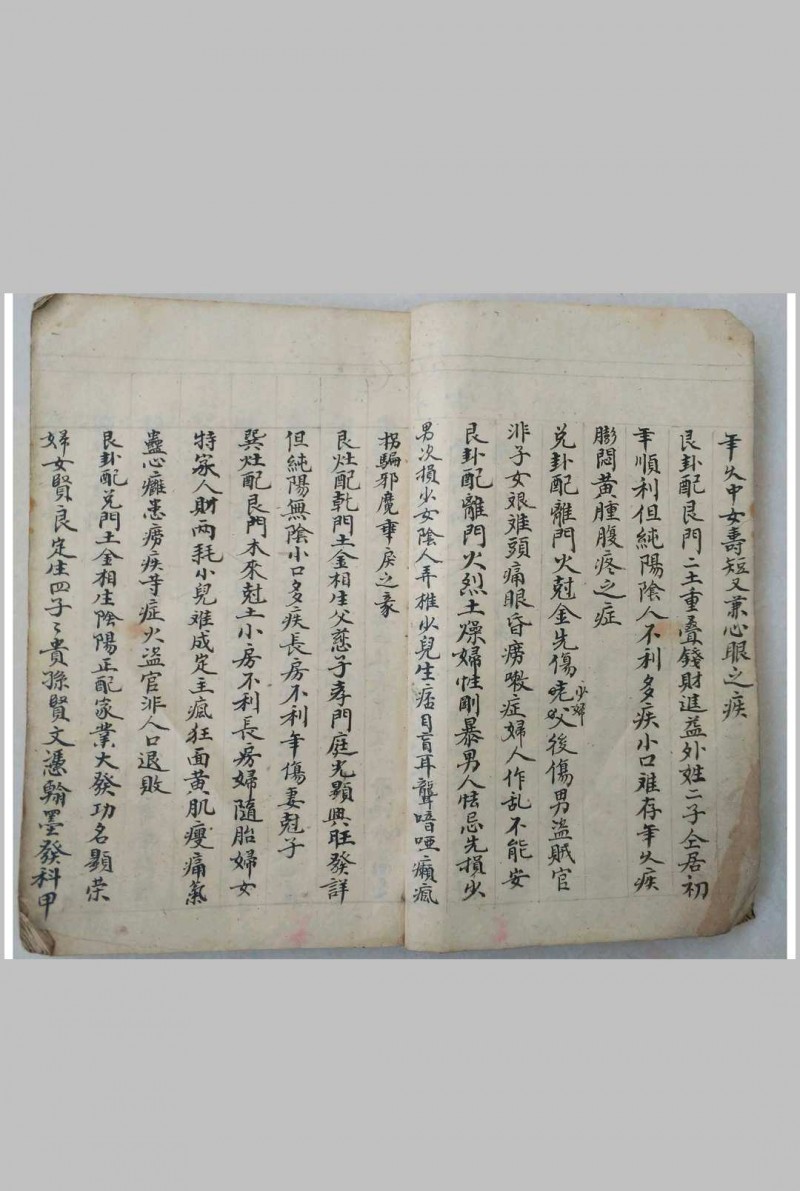 年久中女壽短又兼心眼之疾
艮卦配艮門二土重叠錢財進益外姓二子仝居初
年順利但純陽陰人不利多疾小口难存年久疾
膨悶黃腫腹疼之症
兑卦配離門火尅金先傷少婦後傷男盜賊官
非子女艰难頭痛眼昏痨喉症婦人作乱不能安
艮卦配離門火烈土燥婦性剛暴男人怯忌先損少
男次損少女陰人弄权少兒生痞目盲耳聾喑哑癲瘋
拐騙邪魔
艮灶配乾門土金相生父慈子孝門庭光顯興旺發詳
但純陽無陰小口多疾長房不利年傷妻尅子
巽灶配艮門木來尅土小房不利長房婦隨胎婦女
特家人財兩耗小兒难成定主瘋狂面黃肌瘦痛氣
蠱心癱患痨疾等症火盜官非人口退敗
艮卦配兑門土金相生陰陽正配家業大發功名顯荣
婦女賢良定生四子々貴孫賢文憑翰墨發科甲